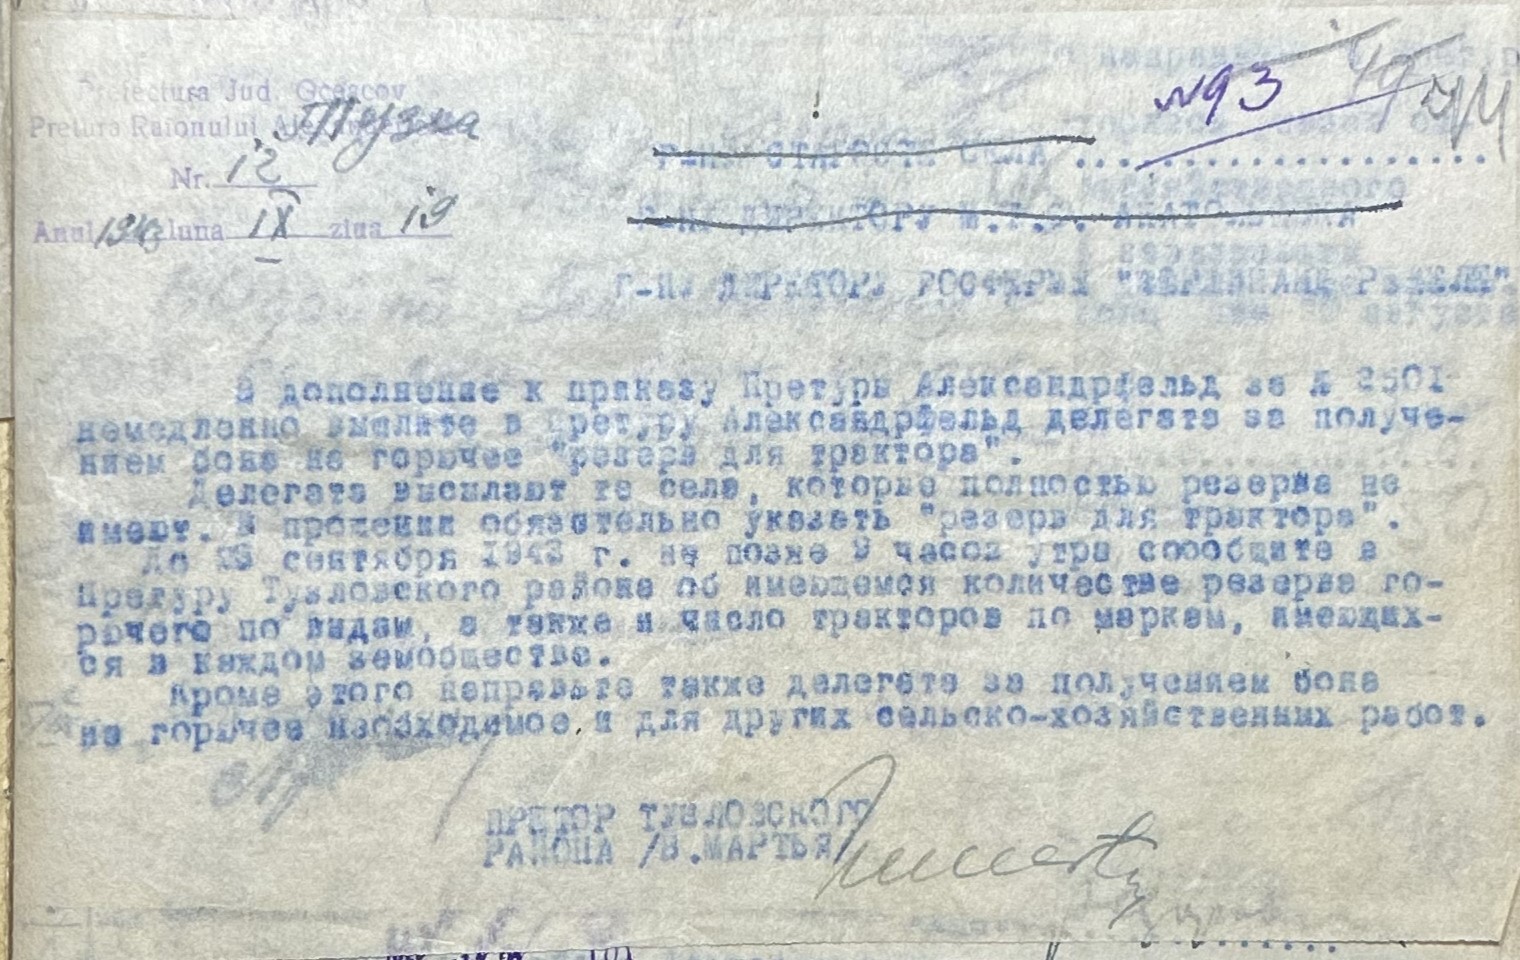 №93 49
Prefectura Jud. Oceacov
Pretura Raionului
Nr. 12
Anul 1943 luna IX ziua 19
Г-НУ СТАРОСТЕ СЕЛА ....................
Г-НУ ДИРЕКТОРУ М.Т.С. АНАТОЛЬЕВКА
Г-НУ ДИРЕКТОРУ ГОСФЕРМЫ "ФЕРДИНАНД
В дополнение к приказу Претуры Александрфельд за № 2501
немедленно вышлите в Претуру Александрфельд делегата за получе-
нием бона на горючее "резерв для трактора".
Делегата высылают те села, которые полностью резерва не
имеют. В прошении обязательно указать "резерв для трактора".
До 23 сентября 1943 г. не позже 9 часов утра сообщите в
Претуру Тузловского района об имеющемся количестве резерва го-
рючего по видам, а также и число тракторов по маркам, имеющих-
ся в каждом земобществе.
Кроме этого направьте также делегата за получением бона
на горючее необходимое и для других сельско-хозяйственных работ.
ПРЕТОР ТУЗЛОВСКОГО
РАЙОНА /В.МАРТЬЯ